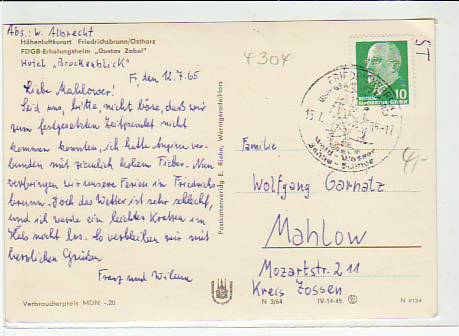 Abs.: W. Albrecht
Höhenluftkurort Friedrichsbrunn/Ostharz
FDGB-Erholungsheim „Gustav Zabel"
Hotel „Brockenblick"
F, den 12.7.65
Liebe Mahlower!
Seid uns, bitte, nicht böse, daß wir
zum festgesetzten Zeitpunkt nicht
kommen konnten, ich hatte Angina ver-
bunden mit ziemlich hohem Fieber. Nun
verbringen wir unsere Ferien in Friedrichs-
brunn. Doch das Wetter ist sehr schlecht,
und ich werde ein leichtes Kratzen im
Hals nicht los. So verbleiben wir mit
herzlichen Grüßen
Franz und
Verbraucherpreis MDN -,20
Postkartenverlag E. Riehn, Wernigerode/Harz
4304
ST
10
FRIEDRICHSBRUNN
Wald - Wasser
4,-
Familie
Wolfgang Garnatz
Mahlow
Mozartstr. 211
Kreis Zossen
N 3/64
IV-14-45
N 0124